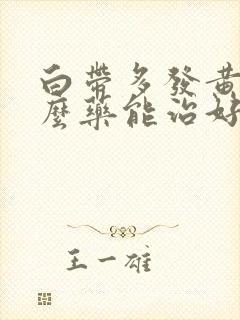 白帶多發黃
麼藥能治好
王一雄